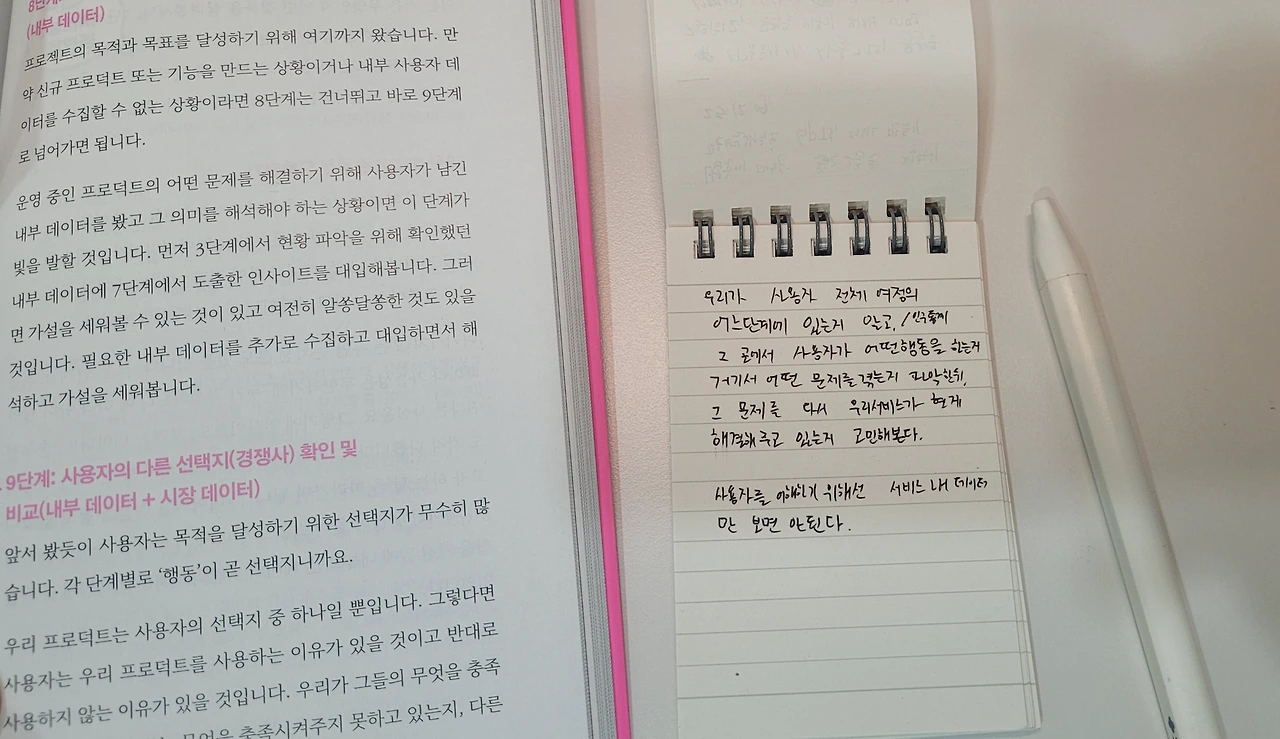 8단계
(내부 데이터)
프로젝트의 목적과 목표를 달성하기 위해 여기까지 왔습니다. 만
약 신규 프로덕트 또는 기능을 만드는 상황이거나 내부 사용자 데
이터를 수집할 수 없는 상황이라면 8단계는 건너뛰고 바로 9단계
로 넘어가면 됩니다.
운영 중인 프로덕트의 어떤 문제를 해결하기 위해 사용자가 남긴
내부 데이터를 봤고 그 의미를 해석해야 하는 상황이면 이 단계가
빛을 발할 것입니다. 먼저 3단계에서 현황 파악을 위해 확인했던
내부 데이터에 7단계에서 도출한 인사이트를 대입해봅니다. 그러
면 가설을 세워볼 수 있는 것이 있고 여전히 알쏭달쏭한 것도 있을
것입니다. 필요한 내부 데이터를 추가로 수집하고 대입하면서 해
석하고 가설을 세워봅니다.
9단계: 사용자의 다른 선택지(경쟁사) 확인 및
비교(내부 데이터 + 시장 데이터)
앞서 봤듯이 사용자는 목적을 달성하기 위한 선택지가 무수히 많
습니다. 각 단계별로 ‘행동’이 곧 선택지니까요.
우리 프로덕트는 사용자의 선택지 중 하나일 뿐입니다. 그렇다면
사용자는 우리 프로덕트를 사용하는 이유가 있을 것이고 반대로
사용하지 않는 이유가 있을 것입니다. 우리가 그들의 무엇을 충족
무엇을 충족시켜주지 못하고 있는지, 다른
우리가 사용자 전체 여정의
어느단계에 있는지 알고,
그 곳에서 사용자가 어떤행동을 하는지
거기서 어떤 문제를 겪는지 파악한뒤,
그 문제를 다시 우리서비스가 현재
해결해주고 있는지 고민해본다.
사용자를 이해하기 위해선 서비스 내 데이터
만 보면 안된다.